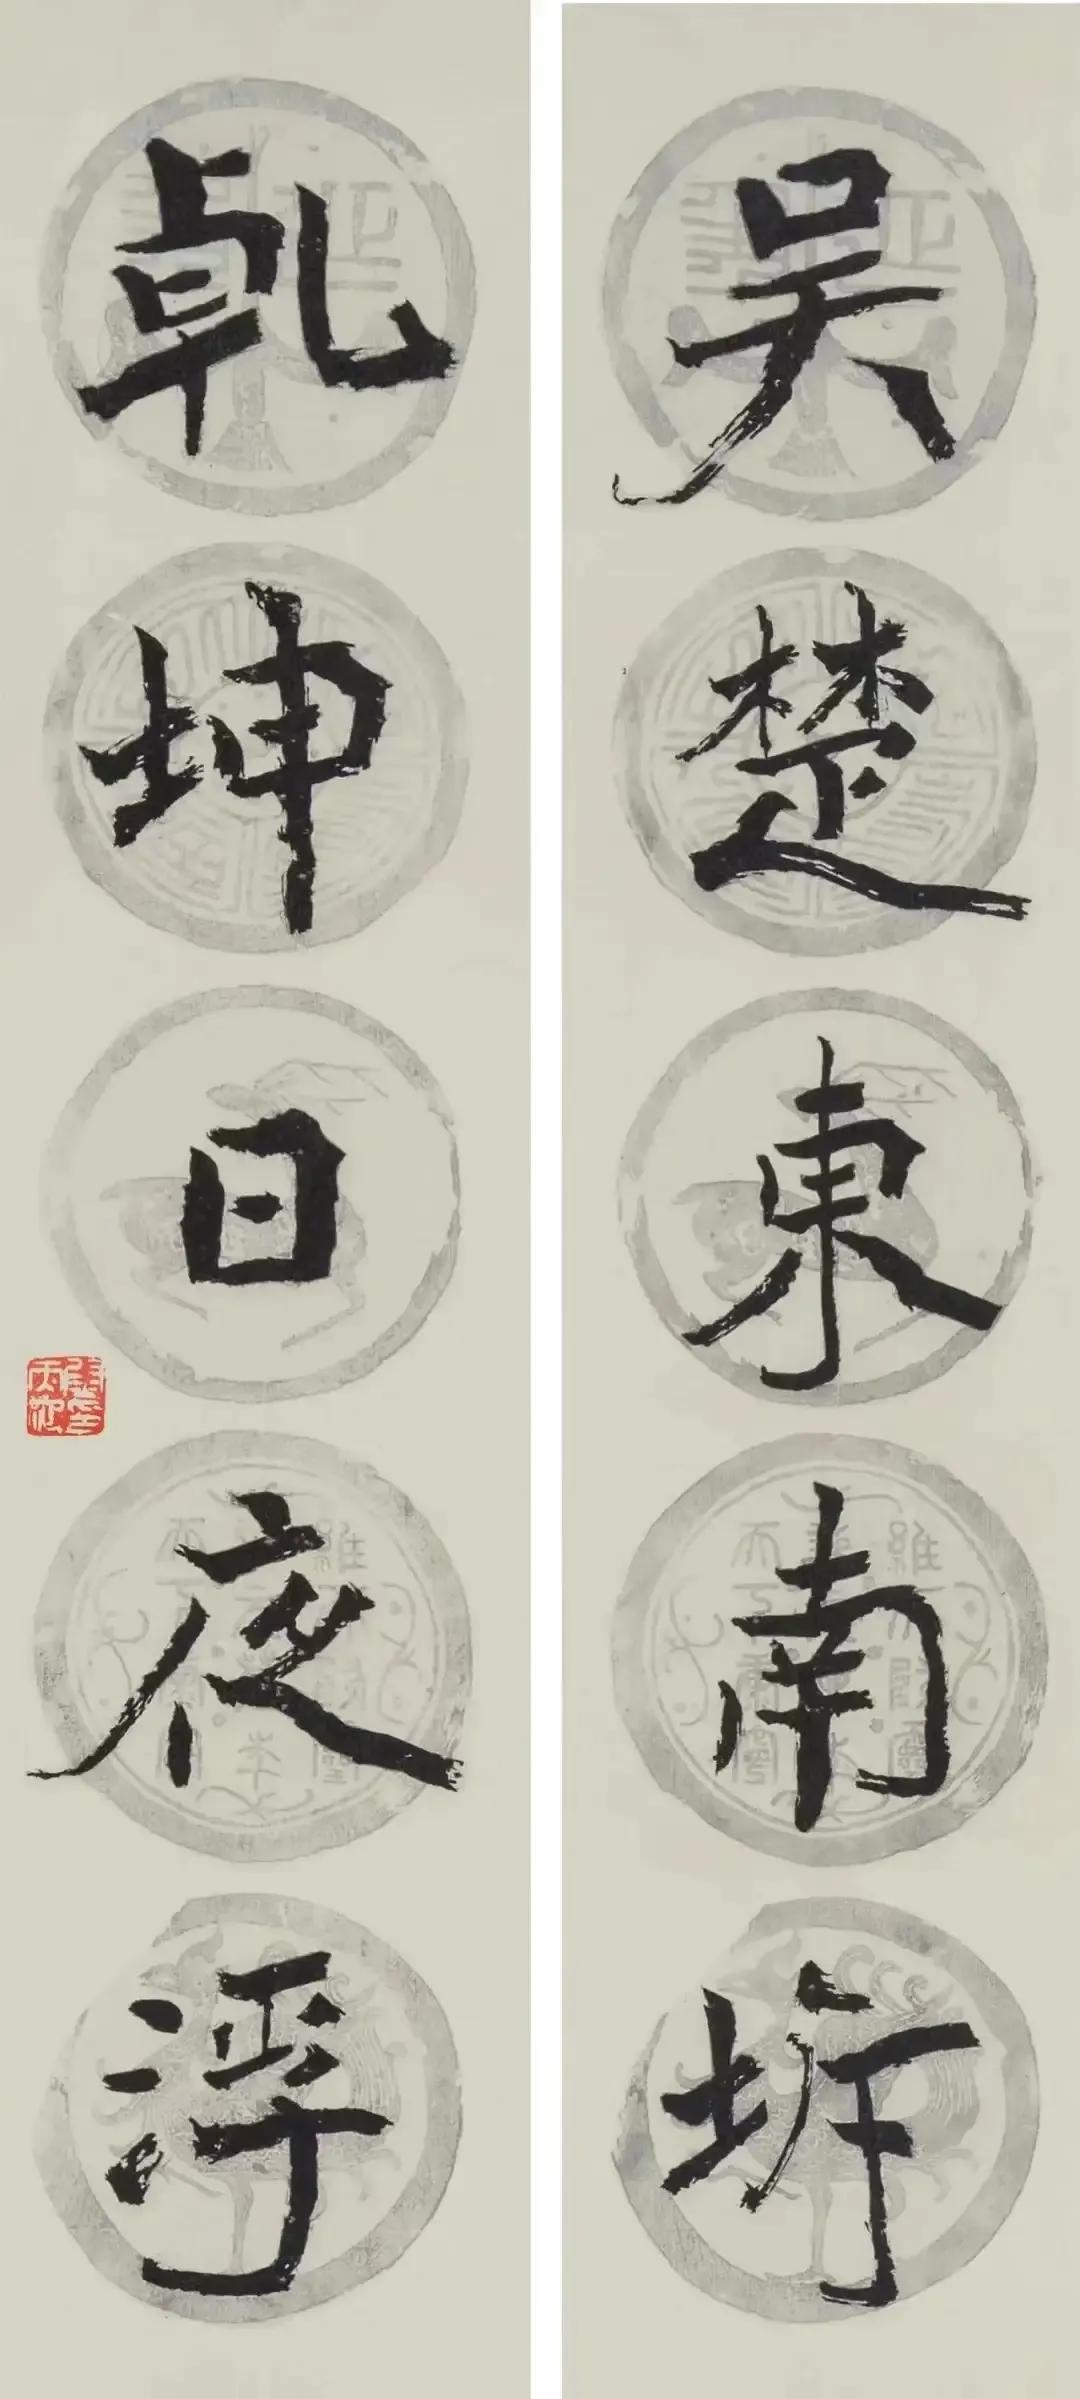 吴楚東南坼
乹坤日夜浮